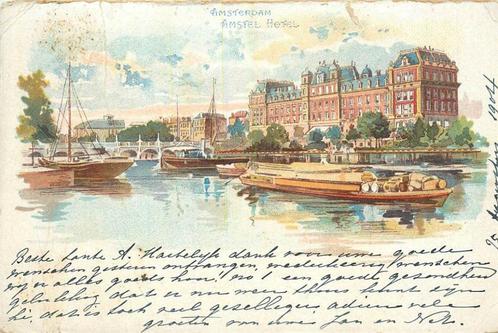 AMSTERDAM
AMSTEL HOTEL
Beste tante A. Hartelijk dank voor uwe goede
wenschen gisteren ontvangen, wederkeerig wenschen
wij u alles goeds hoor! no 1 een goede gezondheid
gelukkig dat u nu weer thuis kunt zijn
hé, dat is toch veel gezelliger, adieu vele
groeten van uwe Jan en
1904